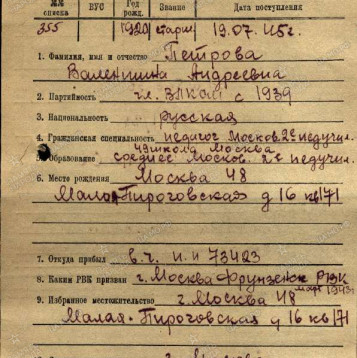 №№ списка ВУС Год рожд. Звание Дата поступления
255 1920 старш 19.07.45г.
1. Фамилия, имя и отчество Петрова
Валентина Андреевна
2. Партийность чл. ВЛКСМ с 1939
3. Национальность русская
4. Гражданская специальность педагог Москов. 2е педучил.
школа Москва
5. Образование среднее Москов. 2е педучил.
6. Место рождения Москва 48
Малая-Пироговская д 16 кв 71
7. Откуда прибыл в.ч. п.п 73423
8. Каким РВК призван г. Москва Фрунзенск РВК
март 1943г
9. Избранное местожительство г. Москва 48
Малая-Пироговская д 16 кв 71